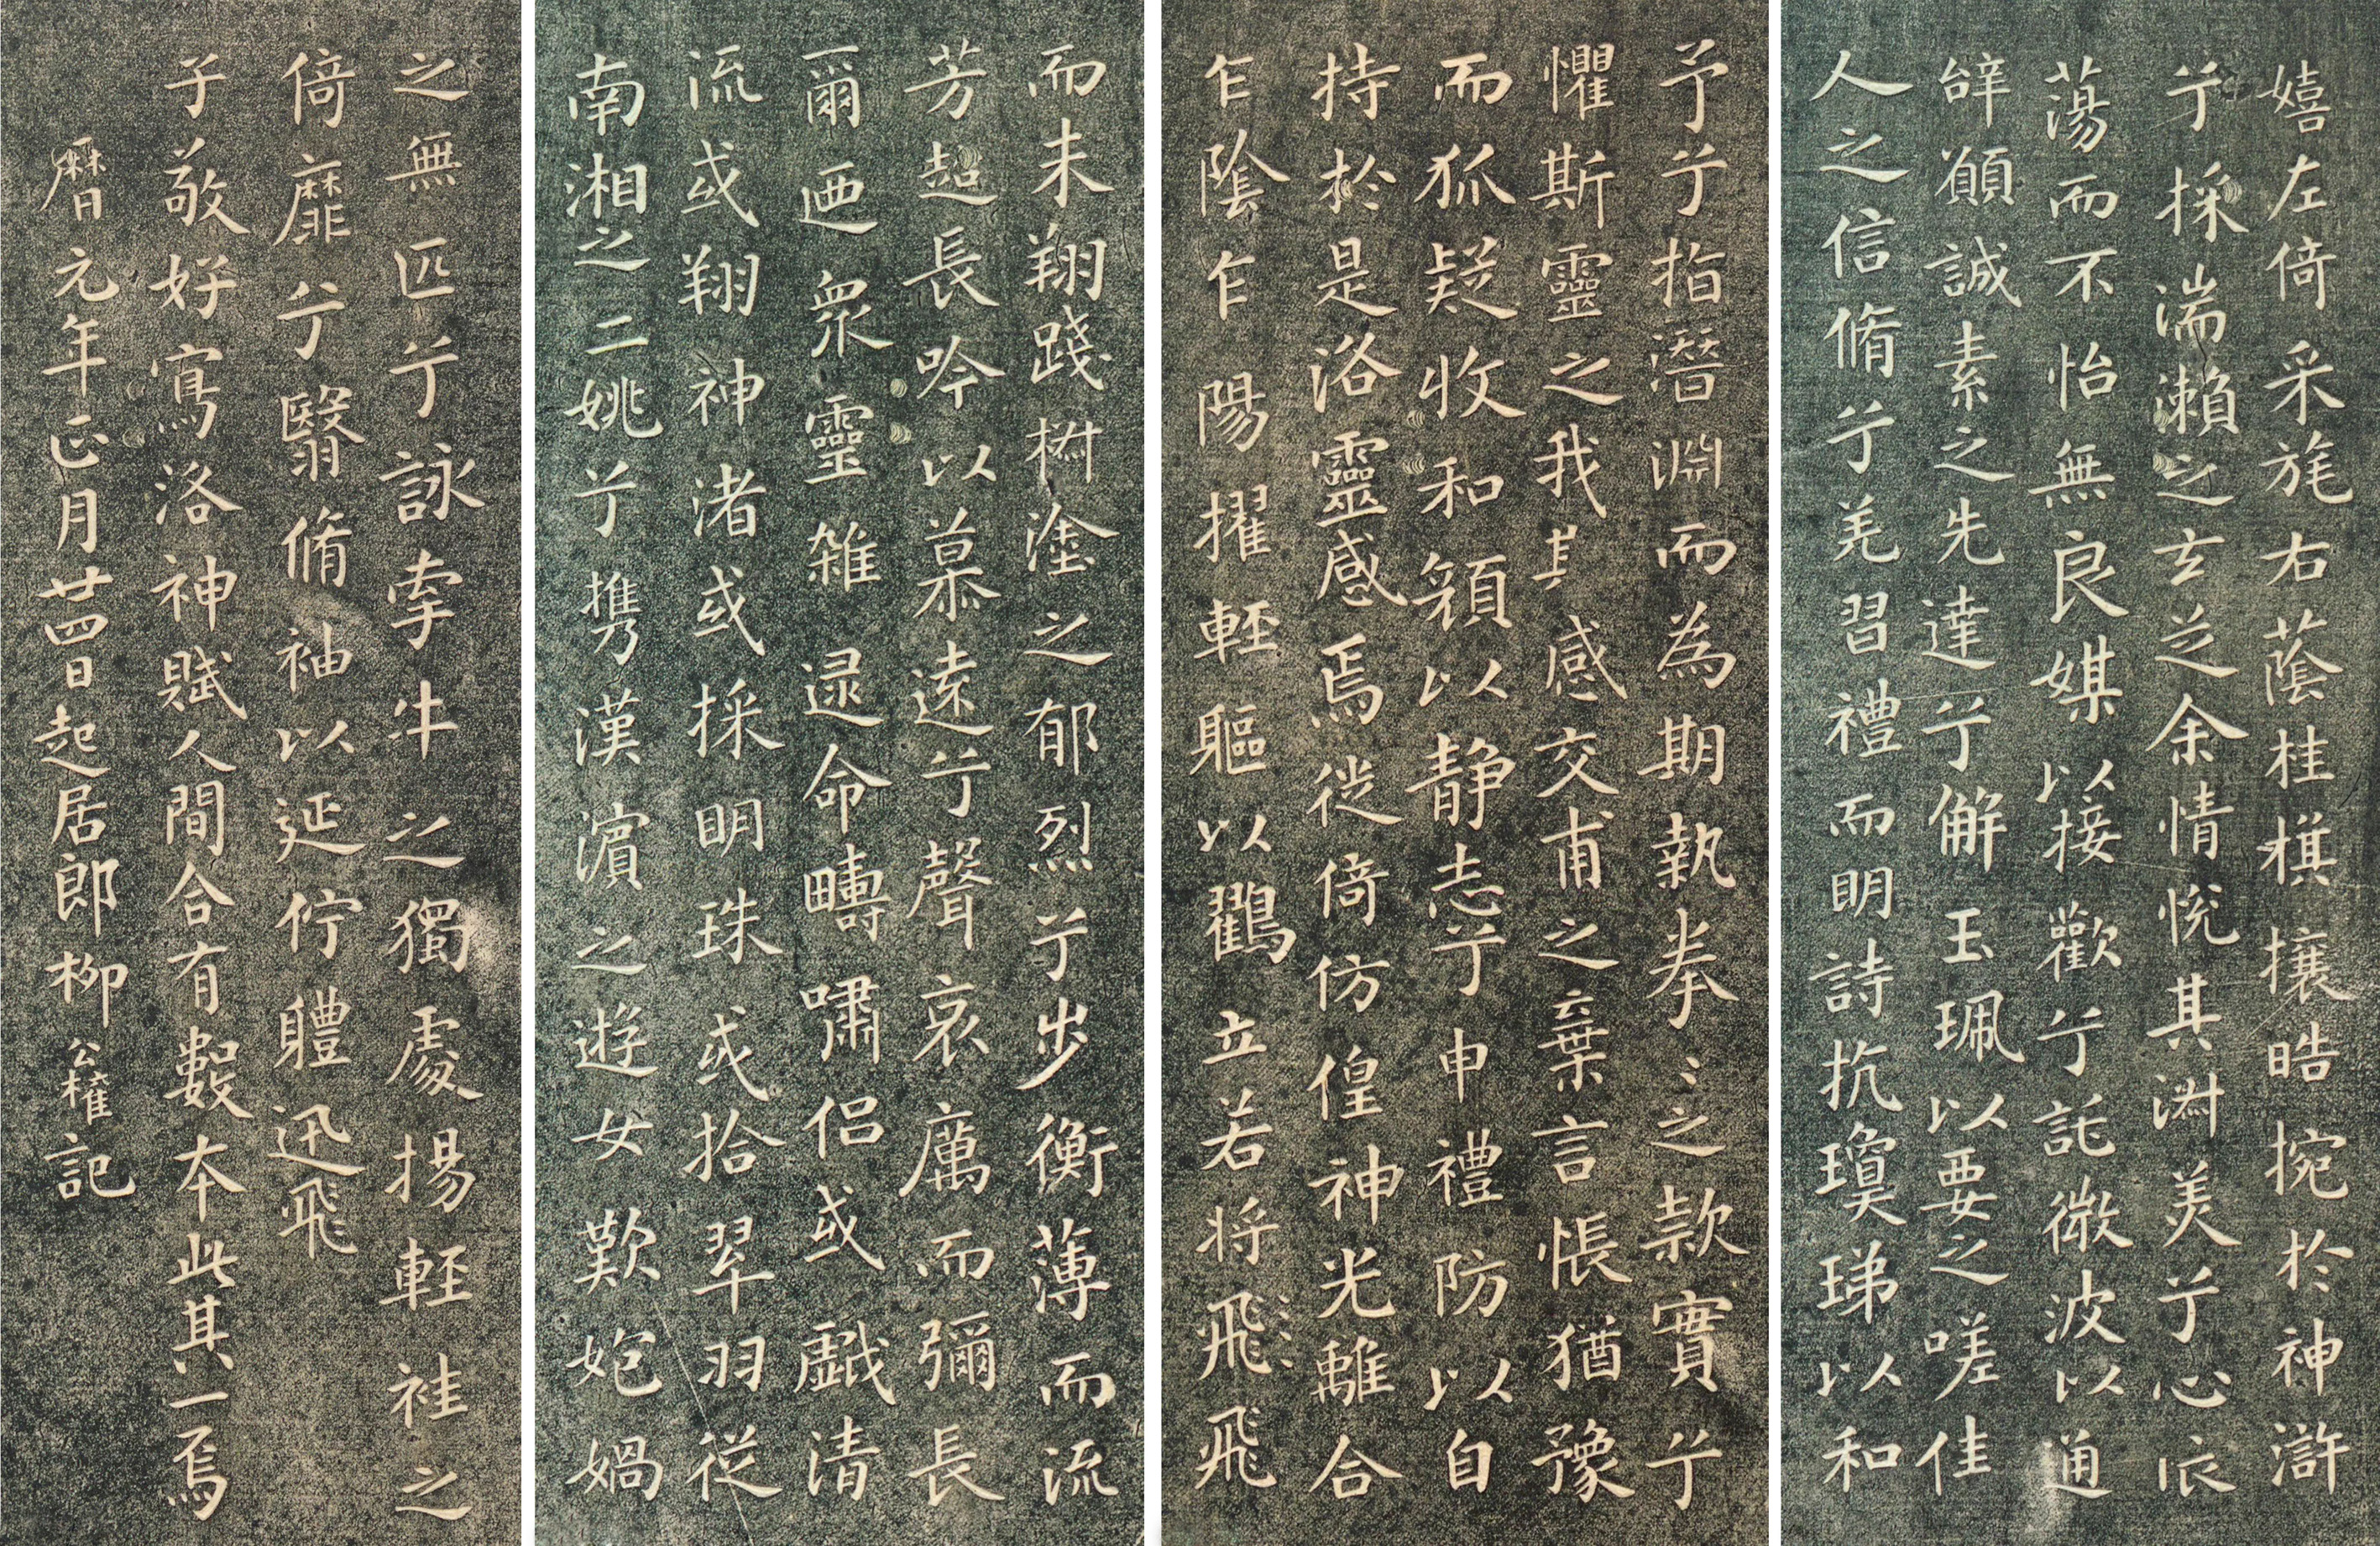 嬉左倚采旄右蔭桂棋攘皓捥於神滸
兮採湍瀨之玄芝余情悅其淵美兮心依
蕩而不怡無良媒以接歡兮託微波以通
辝願誠素之先達兮解玉珮以要之嗟佳
人之信脩兮羌習禮而明詩抗瓊珶以和
予兮指潛淵而為期執拳〻之款實兮
懼斯靈之我其感交甫之棄言悵猶豫
而狐疑收和顏以静志兮申禮防以自
持於是洛靈感焉徙倚仿偟神光離合
乍陰乍陽擢輕軀以鸛立若将飛飛
而未翔踐椒塗之郁烈兮步衡薄而流
芳超長吟以慕遠兮聲哀厲而彌長
爾迺眾靈雜逯命疇嘯侣或戲清
流或翔神渚或採明珠或拾翠羽從
南湘之二姚兮携漢濵之遊女歎匏媧
之無匹兮詠牽牛之獨處揚輕袿之
倚靡兮翳脩袖以延佇軆迅飛
子敬好寫洛神賦人間合有數本此其一焉
曆元年正月廿四日起居郎柳公權記